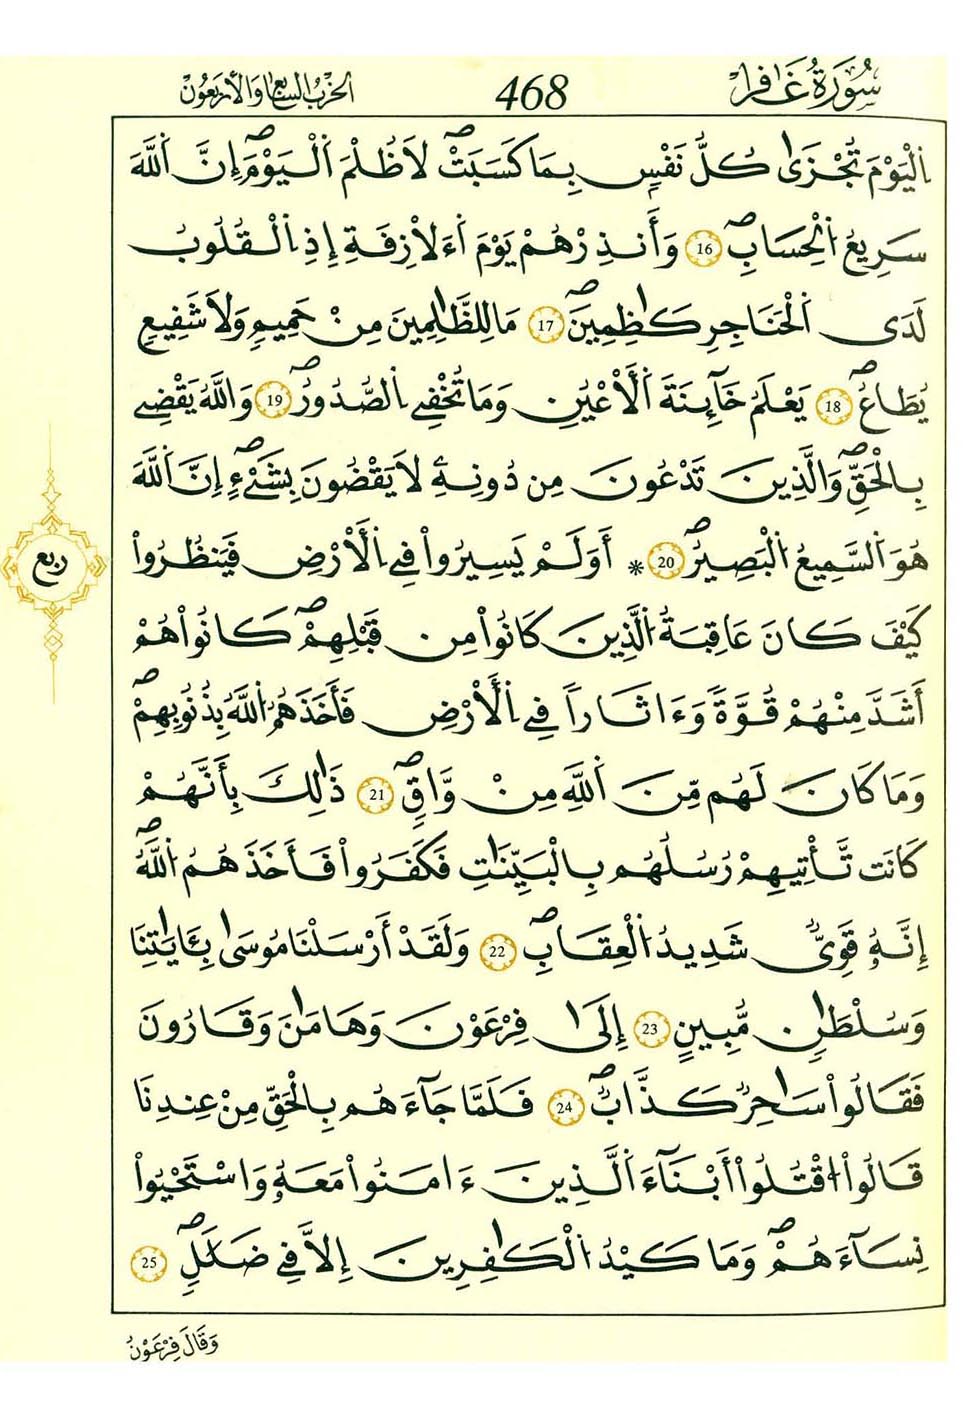 سُورَةُ غَافِر
468
الحِزْبُ السَّابِعُ وَالأَرْبَعُونَ
اَ۬لْيَوْمَ تُجْزَىٰ كُلُّ نَفْسِۢ بِمَا كَسَبَتْۖ لَا ظُلْمَ اَ۬لْيَوْمَۖ إِنَّ اَ۬للَّهَ
سَرِيعُ اُ۬لْحِسَابِۖ 16 وَأَنذِرْهُمْ يَوْمَ اَ۬لَازِفَةِ إِذِ اِ۬لْقُلُوبُ
لَدَى اَ۬لْحَنَاجِرِ كَٰظِمِينَۖ 17 مَا لِلظَّٰلِمِينَ مِنْ حَمِيمٖ وَلَا شَفِيعٖ
يُطَاعُۖ 18 يَعْلَمُ خَآئِنَةَ اَ۬لَاعْيُنِ وَمَا تُخْفِے اِ۬لصُّدُورُۖ 19 وَاللَّهُ يَقْضِے
بِالْحَقِّۖ وَالَّذِينَ تَدْعُونَ مِن دُونِهِۦ لَا يَقْضُونَ بِشَےْءٍۖ اِنَّ اَ۬للَّهَ
هُوَ اَ۬لسَّمِيعُ اُ۬لْبَصِيرُۖ 20 * أَوَلَمْ يَسِيرُواْ فِے اِ۬لَارْضِ فَيَنظُرُواْ
كَيْفَ كَانَ عَاقِبَةُ اُ۬لَّذِينَ كَانُواْ مِن قَبْلِهِمْۖ كَانُواْ هُمْ
أَشَدَّ مِنْهُمْ قُوَّةٗ وَءَاثَاراٗ فِے اِ۬لَارْضِ فَأَخَذَهُمُ اُ۬للَّهُ بِذُنُوبِهِمْۖ
وَمَا كَانَ لَهُم مِّنَ اَ۬للَّهِ مِنْ وَّاقٖۖ 21 ذَٰلِكَ بِأَنَّهُمْ
كَانَت تَّأْتِيهِمْ رُسُلُهُم بِالْبَيِّنَٰتِ فَكَفَرُواْ فَأَخَذَهُمُ اُ۬للَّهُۖ
إِنَّهُۥ قَوِيّٞ شَدِيدُ اُ۬لْعِقَابِۖ 22 وَلَقَدْ أَرْسَلْنَا مُوسَىٰ بِـَٔايَٰتِنَا
وَسُلْطَٰنٖ مُّبِينٍ 23 إِلَىٰ فِرْعَوْنَ وَهَامَٰنَ وَقَارُونَ
فَقَالُواْ سَٰحِرٞ كَذَّابٞۖ 24 فَلَمَّا جَآءَهُم بِالْحَقِّ مِنْ عِندِنَا
قَالُواْ اُ۟قْتُلُواْ أَبْنَآءَ اَ۬لَّذِينَ ءَامَنُواْ مَعَهُۥ وَاسْتَحْيُواْ
نِسَآءَهُمْۖ وَمَا كَيْدُ اُ۬لْكَٰفِرِينَ إِلَّا فِے ضَلَٰلٖۖ 25
ربع
وَقَالَ فِرْعَوْنُ